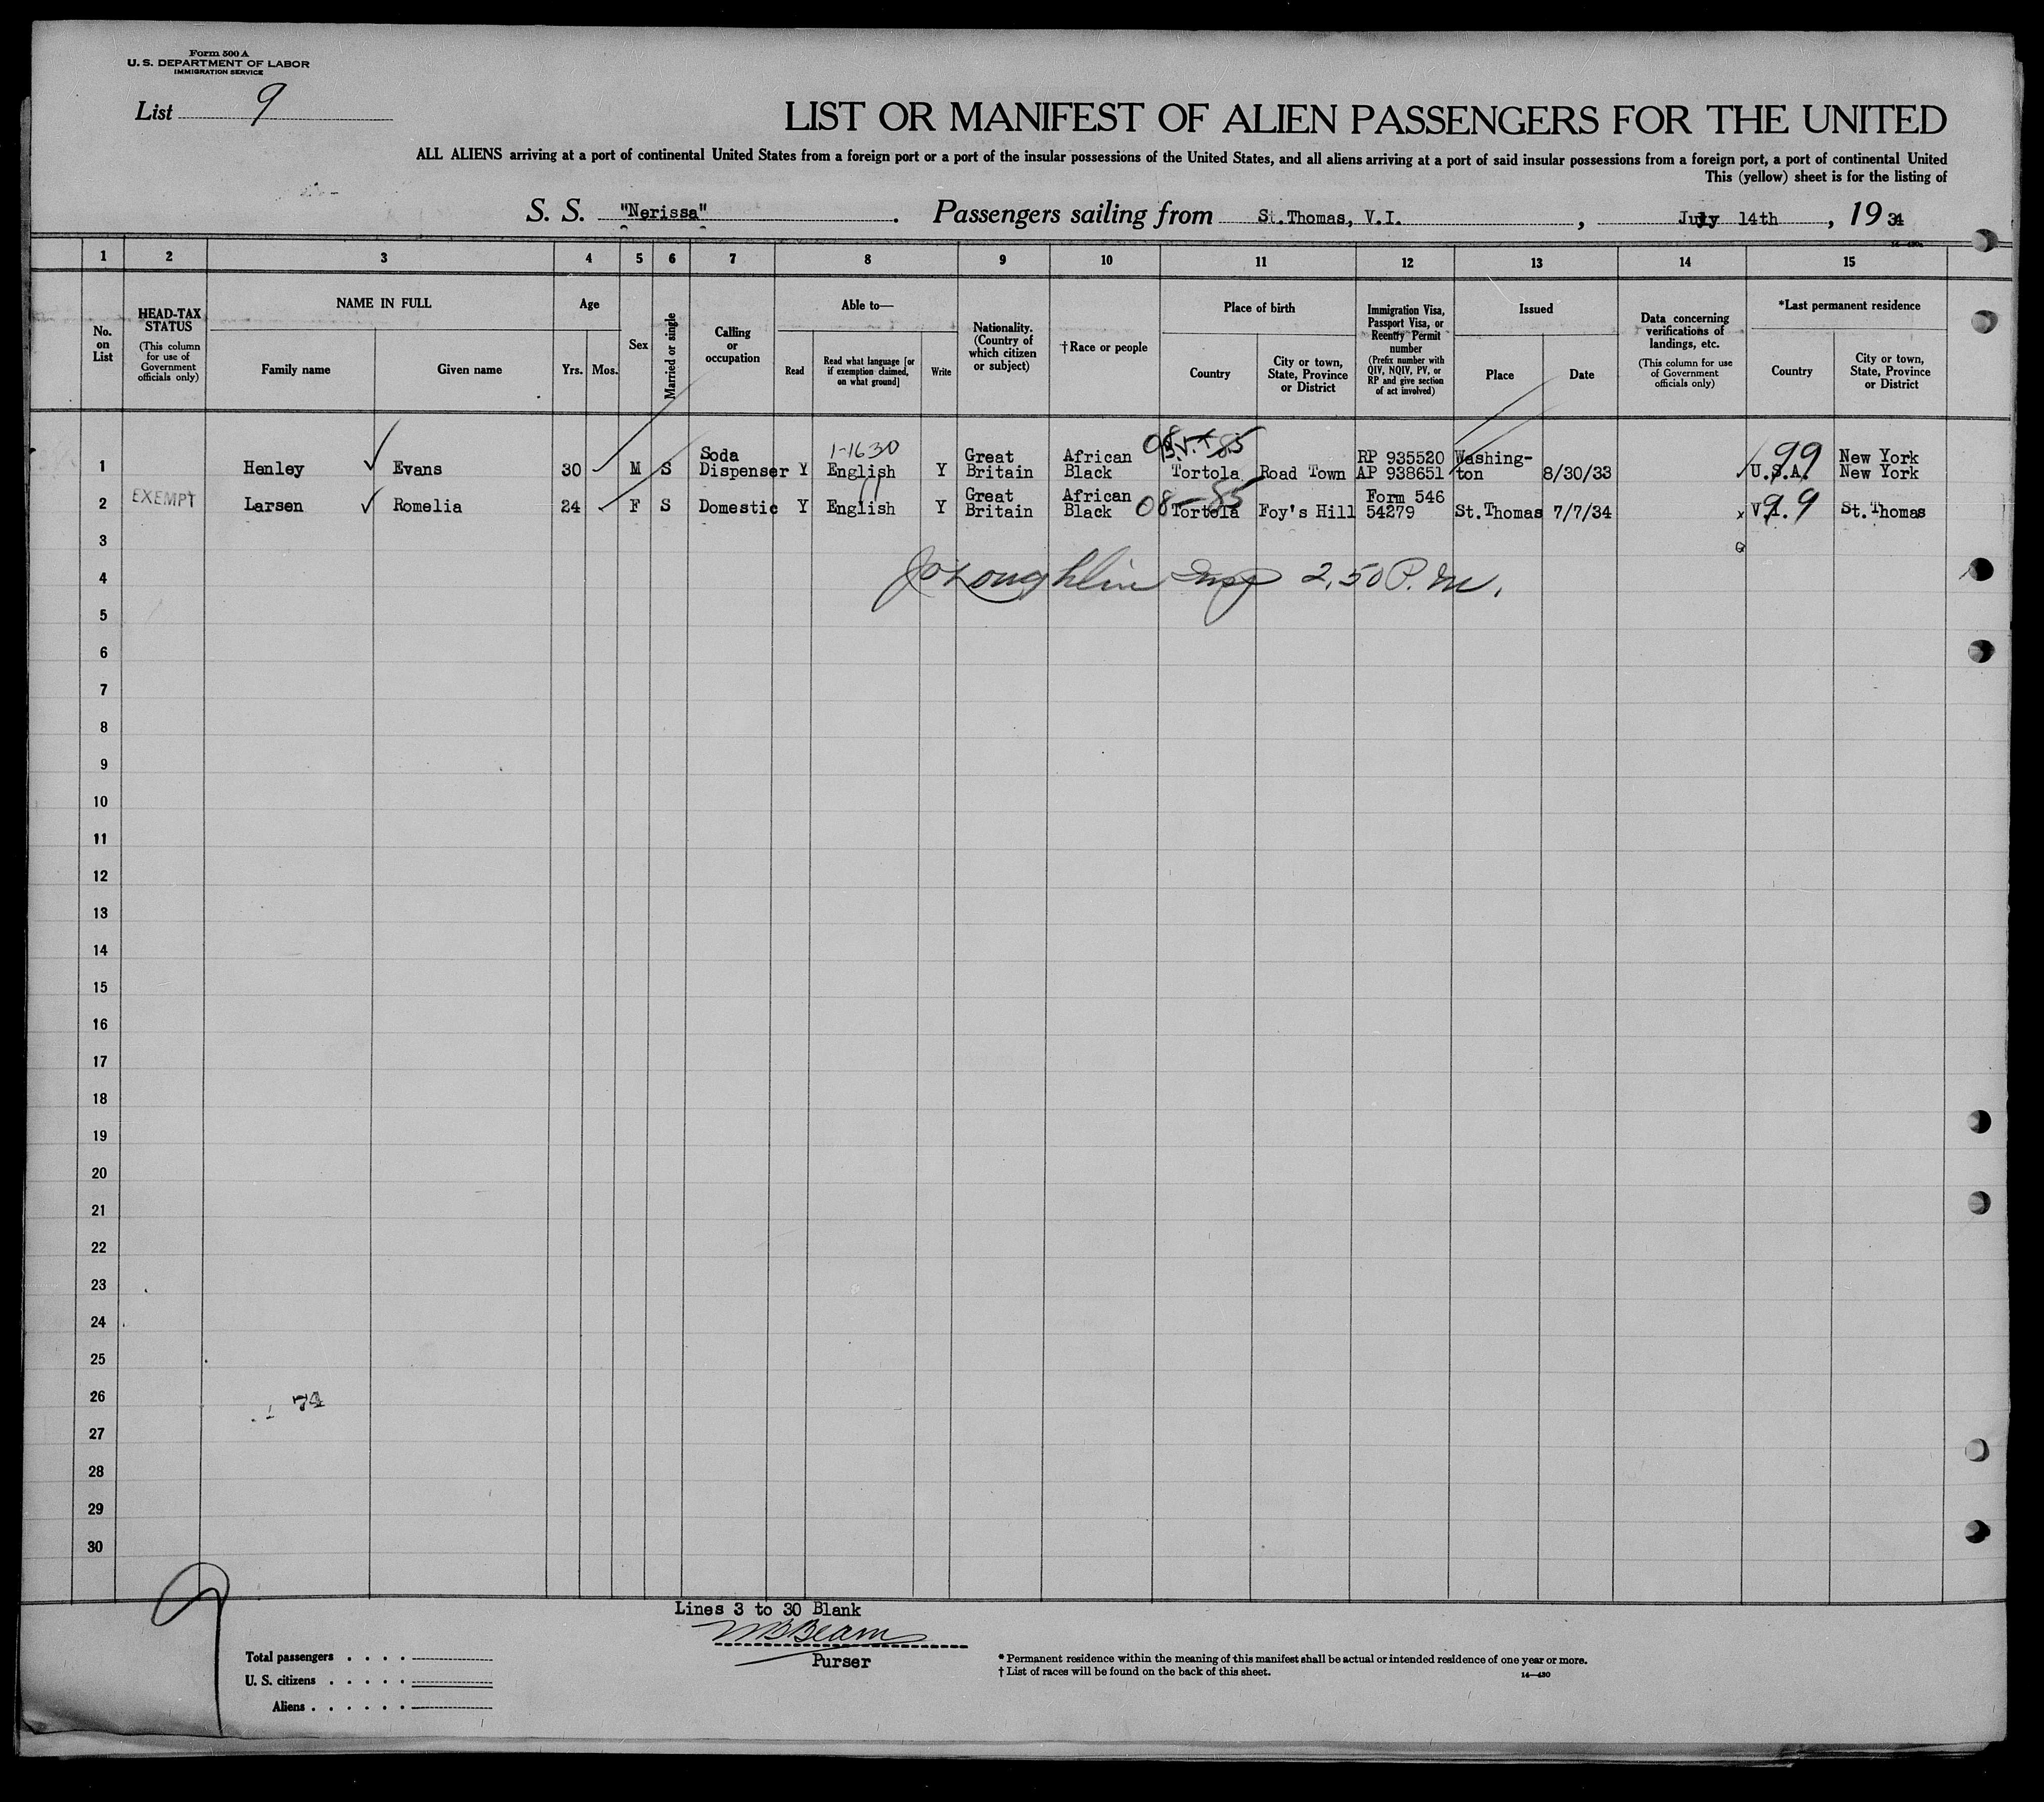 Form 500 A
U. S. DEPARTMENT OF LABOR
IMMIGRATION SERVICE
List 9
LIST OR MANIFEST OF ALIEN PASSENGERS FOR THE UNITED
ALL ALIENS arriving at a port of continental United States from a foreign port or a port of the insular possessions of the United States, and all aliens arriving at a port of said insular possessions from a foreign port, a port of continental United
This (yellow) sheet is for the listing of
S. S. "Nerissa". Passengers sailing from St. Thomas, V.I., July 14th, 1934
1 2 3 4 5 6 7 8 9 10 11 12 13 14 15
No. on List
HEAD-TAX STATUS
(This column for use of Government officials only)
NAME IN FULL
Family name
Given name
Age
Yrs. Mos.
Sex
Married or single
Calling or occupation
Able to—
Read
Read what language [or if exemption claimed, on what ground]
Write
Nationality. (Country of which citizen or subject)
†Race or people
Place of birth
Country
City or town, State, Province or District
Immigration Visa, Passport Visa, or Reentry Permit number
(Prefix number with QIV, NQIV, PV, or RP and give section of act involved)
Issued
Place
Date
Data concerning verifications of landings, etc.
(This column for use of Government officials only)
*Last permanent residence
Country
City or town, State, Province or District
1 Henley Evans 30 M S Soda Dispenser Y 1-1630 English Y Great Britain African Black 08 B.V.I. 85 Tortola Road Town RP 935520 AP 938651 Washington 8/30/33 99 U.S.A. New York New York
2 EXEMPT Larsen Romelia 24 F S Domestic Y English Y Great Britain African Black 08-85 Tortola Foy's Hill Form 546 54279 St. Thomas 7/7/34 x V.I. 99 St. Thomas
3
4
JO'Loughlin Insp 2.50 P.M.
5
6
7
8
9
10
11
12
13
14
15
16
17
18
19
20
21
22
23
24
25
26
74
27
28
29
30
9
Lines 3 to 30 Blank
Purser
Total passengers
U. S. citizens
Aliens
* Permanent residence within the meaning of this manifest shall be actual or intended residence of one year or more.
† List of races will be found on the back of this sheet.
14—430